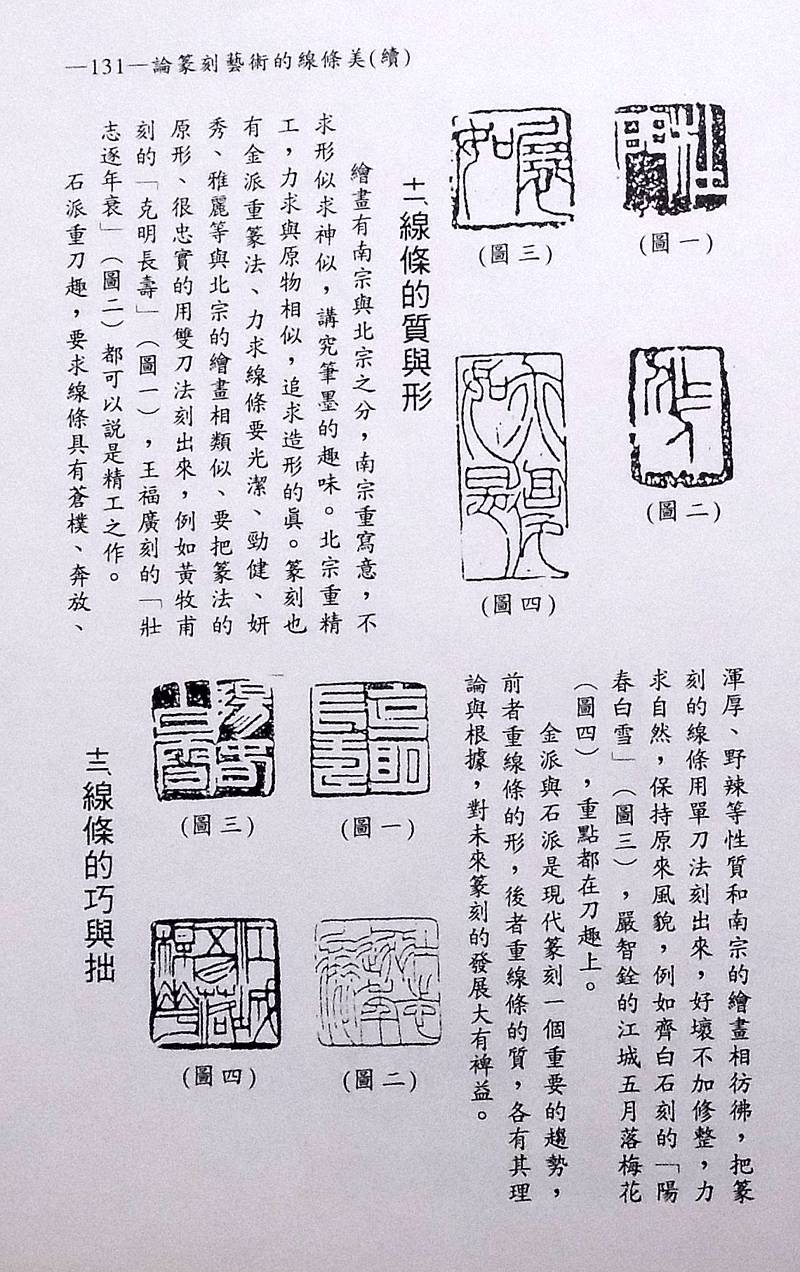 —131—論篆刻藝術的線條美(續)
(圖一)
(圖二)
(圖三)
(圖四)
十二、線條的質與形
繪畫有南宗與北宗之分，南宗重寫意，不
求形似求神似，講究筆墨的趣味。北宗重精
工，力求與原物相似，追求造形的眞。篆刻也
有金派重篆法、力求線條要光潔、勁健、妍
秀、雅麗等與北宗的繪畫相類似、要把篆法的
原形、很忠實的用雙刀法刻出來，例如黃牧甫
刻的「克明長壽」（圖一），王福廣刻的「壯
志逐年衰」（圖二）都可以說是精工之作。
石派重刀趣，要求線條具有蒼樸、奔放、
渾厚、野辣等性質和南宗的繪畫相彷彿，把篆
刻的線條用單刀法刻出來，好壞不加修整，力
求自然，保持原來風貌，例如齊白石刻的「陽
春白雪」（圖三），嚴智銓的江城五月落梅花
（圖四），重點都在刀趣上。
金派與石派是現代篆刻一個重要的趨勢，
前者重線條的形，後者重線條的質，各有其理
論與根據，對未來篆刻的發展大有裨益。
(圖一)
(圖二)
(圖三)
(圖四)
十三、線條的巧與拙